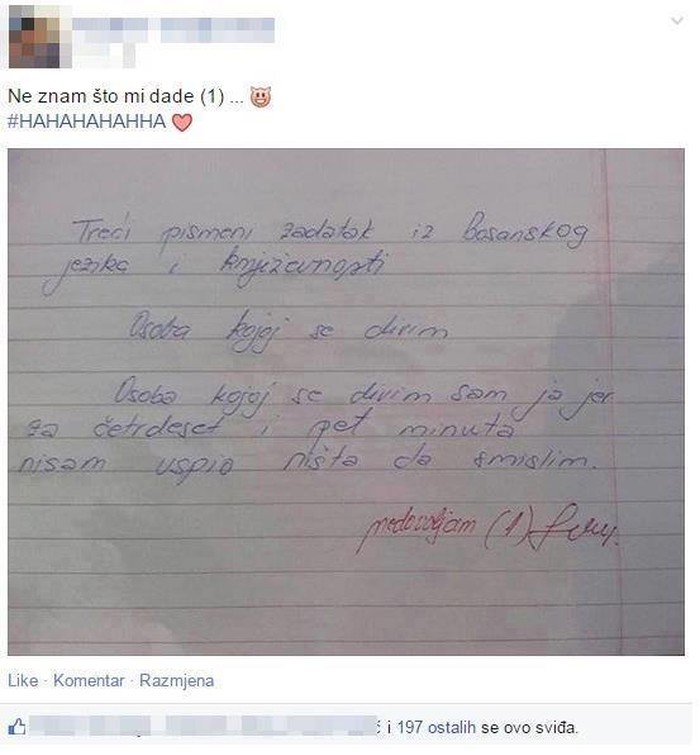 Ne znam što mi dade (1) ...
#HAHAHAHAHHA
Treći pismeni zadatak iz bosanskog
jezika i književnosti
Osoba kojoj se divim
Osoba kojoj se divim sam ja jer
za četrdeset i pet minuta
nisam uspio ništa da smislim.
nedovoljan (1)
Like · Komentar · Razmjena
i 197 ostalih se ovo sviđa.